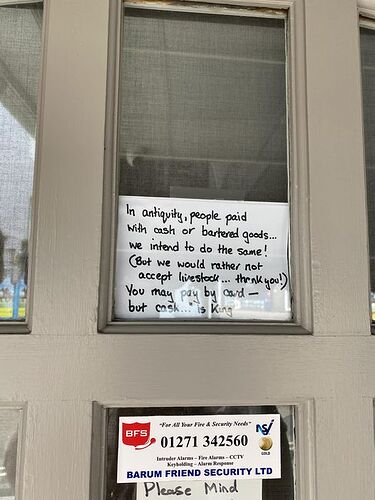 In antiquity, people paid
with cash or bartered goods...
we intend to do the same!
(But we would rather not
accept livestock... thank you!)
You may pay by card –
but cash... is King
"For All Your Fire & Security Needs"
BFS
01271 342560
NSI
GOLD
Intruder Alarms - Fire Alarms - CCTV
Keyholding - Alarm Response
BARUM FRIEND SECURITY LTD
Please Mind